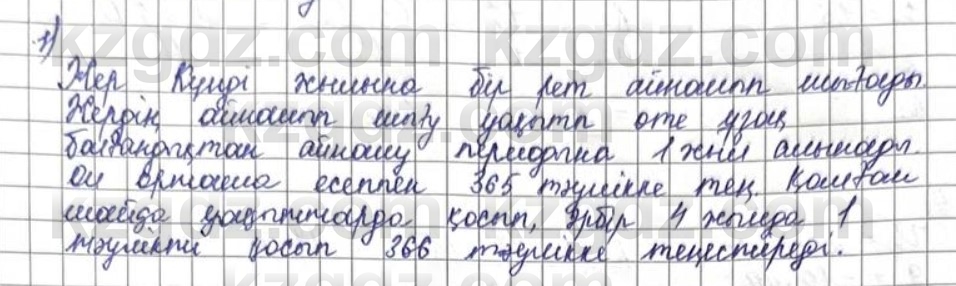 1)
Жер Күнді жылына бір рет айналып шығады.
Жердің айналып шығу уақыты өте ұзақ
болғандықтан айналу периодына 1 жыл алынады.
Ол орташа есеппен 365 тәулікке тең. Қалған
шайда уақыттарды қосып, әрбір 4 жылда 1
тәулікті қосып 366 тәулікке теңестіреді.